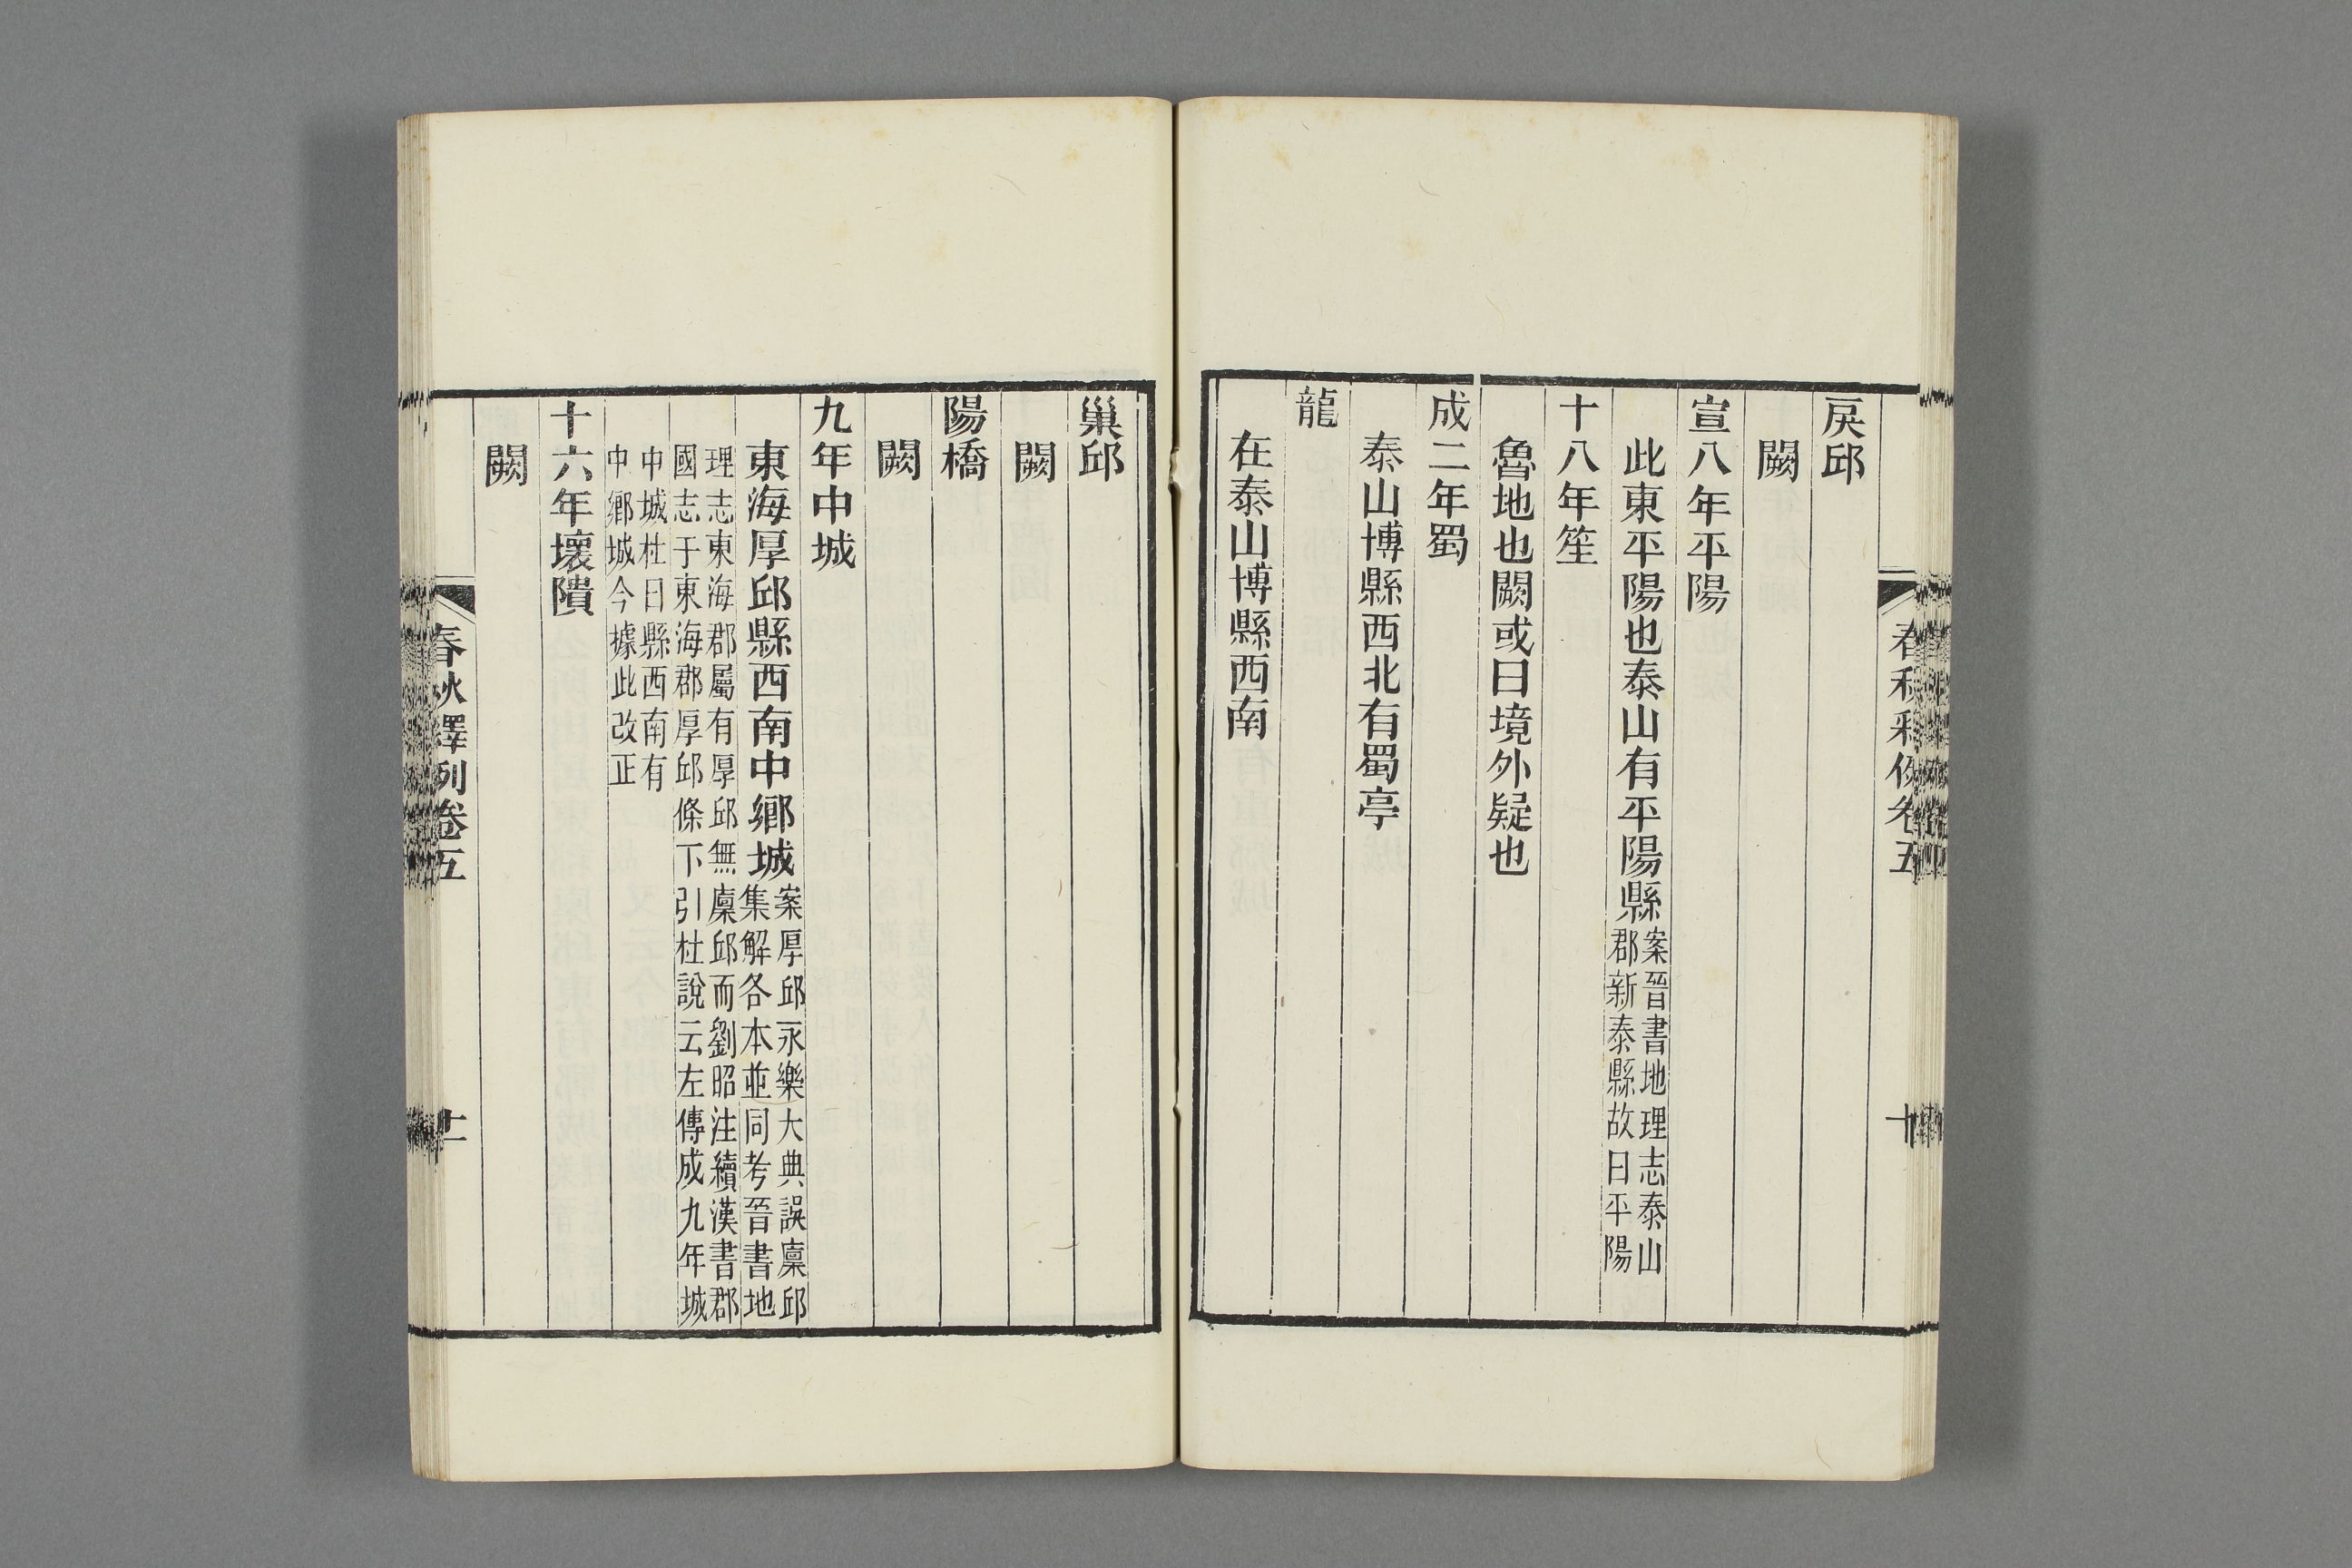 戻邱
闕
宣八年平陽
此東平陽也泰山有平陽縣案晉書地理志泰山
郡新泰縣故曰平陽
十八年笙
魯地也闕或曰境外疑也
成二年蜀
泰山博縣西北有蜀亭
龍
在泰山博縣西南
巢邱
闕
陽橋
闕
九年中城
東海厚邱縣西南中鄉城案厚邱永樂大典誤廩邱
集解各本並同考晉書地
理志東海郡屬有厚邱無廩邱而劉昭注續漢書郡
國志于東海郡厚邱條下引杜說云左傳成九年城
中城杜曰縣西南有
中鄉城今據此改正
十六年壞隤
闕
春秋釋例卷五
十一